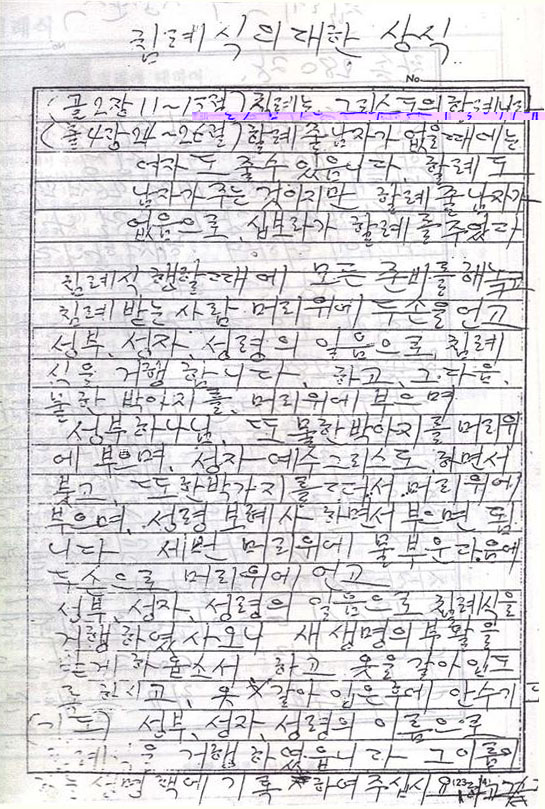 침례식의대한 상식
No.
(골2장 11~15절) 침례는, 그리스도의 할례니라
(출4장 24~26절) 할례 줄남자가 없을때에는
여자도 줄수 있읍니다. 할례도
남자가 주는 것이지만 할례 줄남자가
없음으로, 십보라가 할례를 주었다
침례식 행할때에 모든 준비를 해놓고
침례 받는 사람 머리위에 두손을 언고
성부, 성자, 성령의 일음으로, 침례
식을 거행 합니다, 하고, 그다음,
물한 박아지를, 머리위에 부으며
성부하나님, 또 물한박아지를 머리위
에 부으며, 성자 예수그리스도, 하면서
붓고, 또한박가지를 떠서 머리위에
부으며, 성령 보혜사 하면서 부으면 됨
니다 세번 머리위에 물 부운다음에
두손으로 머리위에 언고
성부, 성자, 성령의 일음으로 침례식을
거행 하였사오니 새생명의 부활을
하옵소서 하고 옷을 갈아입도
록 하시고, 옷 갈아 입은후에 안수기
(기도) 성부, 성자, 성령의 이름으로
거행 하였읍니다 그이름이
생명책에 기록 하여 주십시요